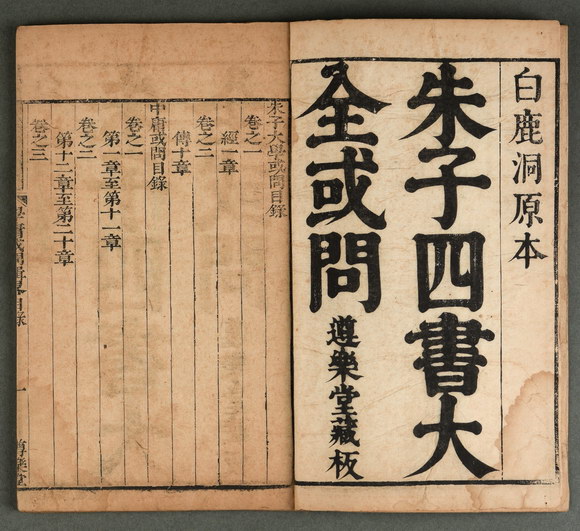 白鹿洞原本
朱子四書大
全或問
遵樂堂藏板
朱子大學或問目錄
卷之一
經一章
卷之二
傳十章
中庸或問目錄
卷之一
第一章至第十一章
卷之二
第十二章至第二十章
卷之三
目錄
一